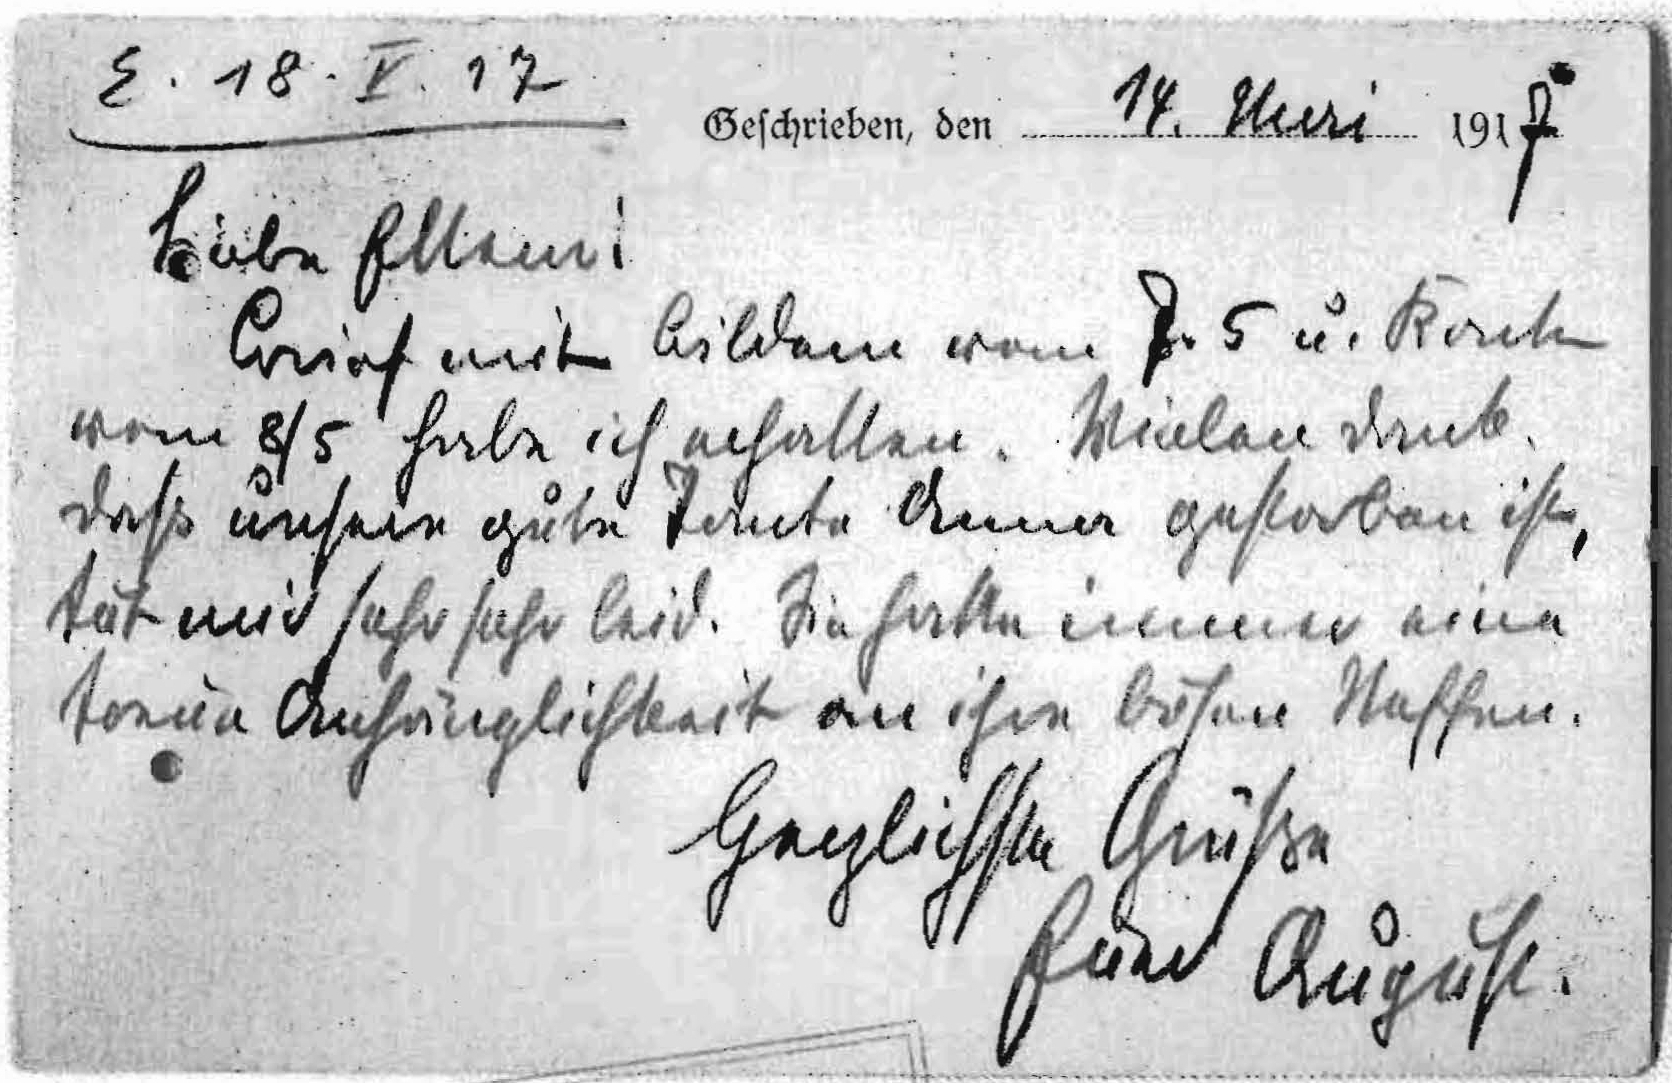 E. 18. V. 17
Geschrieben, den 14. Mai 1917
Liebe Eltern!
Brief mit Bildern vom 7. 5 u. Karte
vom 8/5 habe ich erhalten. Vielen Dank.
Dass unsere gute Tante Anna gestorben ist,
tut mir sehr sehr leid. Sie hatte immer eine
treue Anhänglichkeit an ihre bösen Neffen.
Herzlichste Grüße
Euer August.